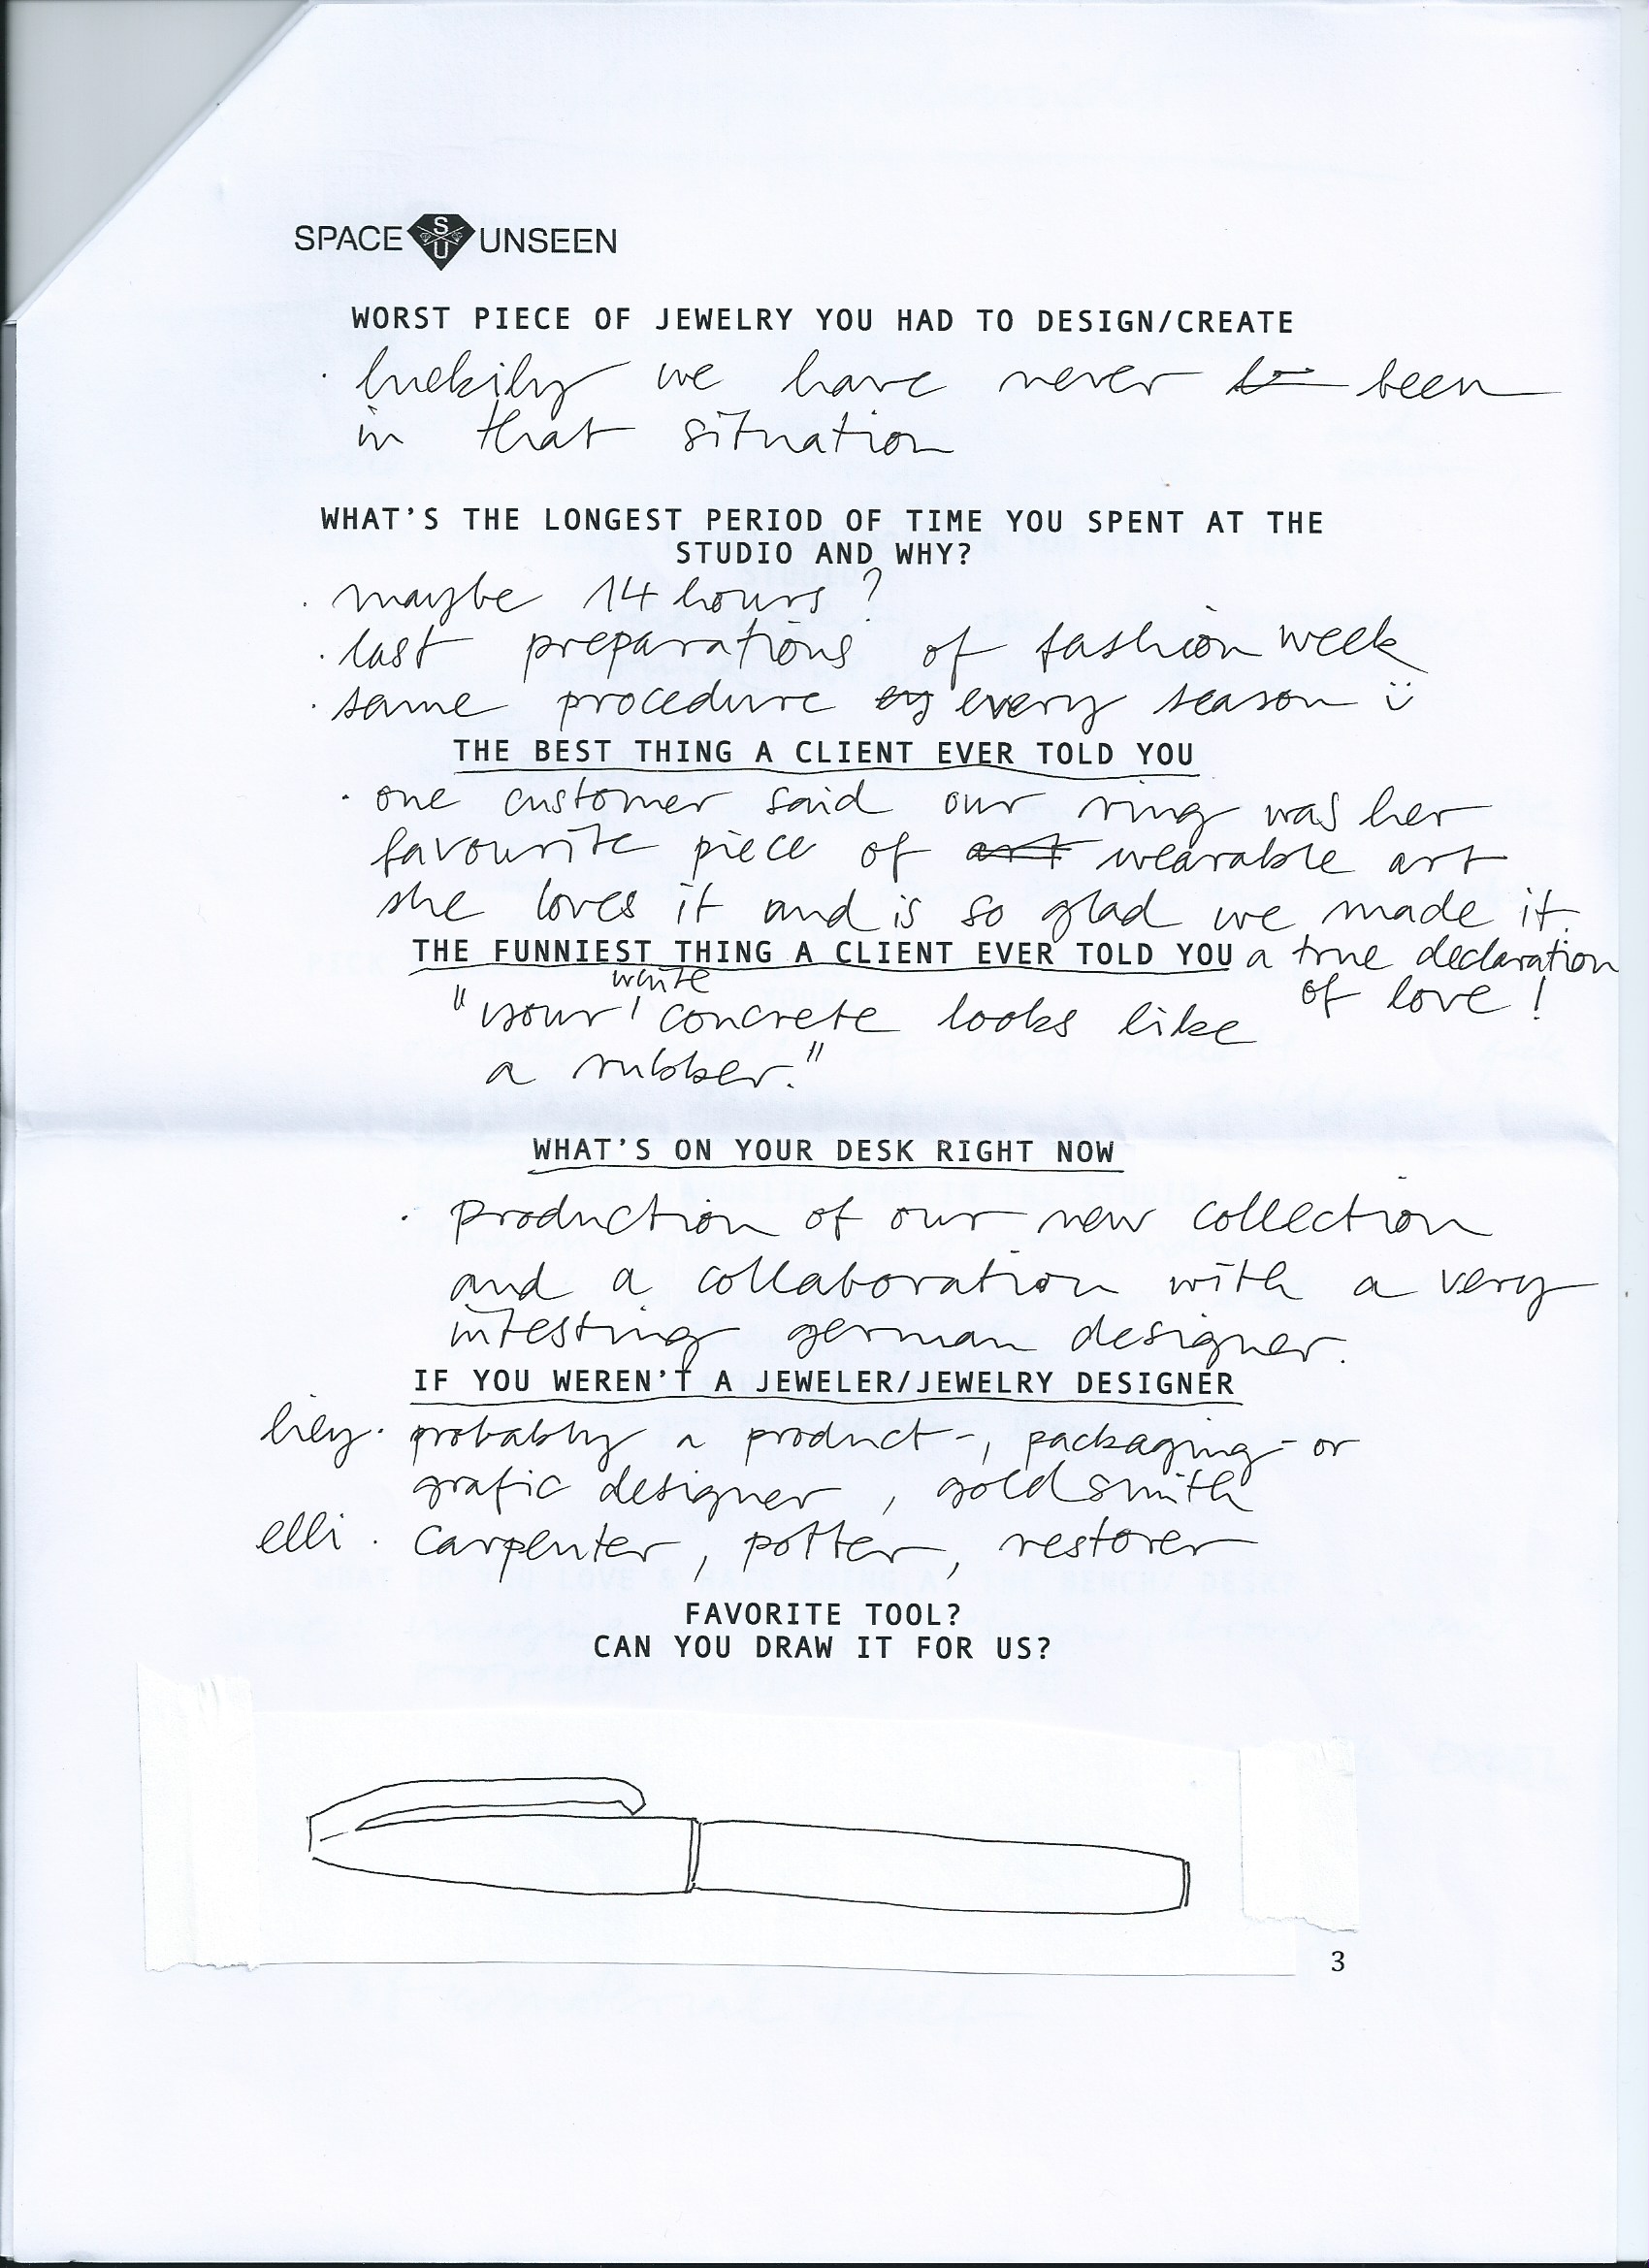 SPACE SU UNSEEN
WORST PIECE OF JEWELRY YOU HAD TO DESIGN/CREATE
· luckily we have never be been
in that situation
WHAT'S THE LONGEST PERIOD OF TIME YOU SPENT AT THE
STUDIO AND WHY?
· maybe 14 hours ?
· last preparations of fashion week
· same procedure ey every season ü
THE BEST THING A CLIENT EVER TOLD YOU
· one customer said our ring was her
favourite piece of art wearable art
she loves it and is so glad we made it.
THE FUNNIEST THING A CLIENT EVER TOLD YOU a true declaration
of love !
"your white concrete looks like
a rubber."
WHAT'S ON YOUR DESK RIGHT NOW
· production of our new collection
and a collaboration with a very
intesting german designer.
IF YOU WEREN'T A JEWELER/JEWELRY DESIGNER
· probably a product-, packaging- or
grafic designer, goldsmith
elli · carpenter, potter, restorer
FAVORITE TOOL?
CAN YOU DRAW IT FOR US?
3